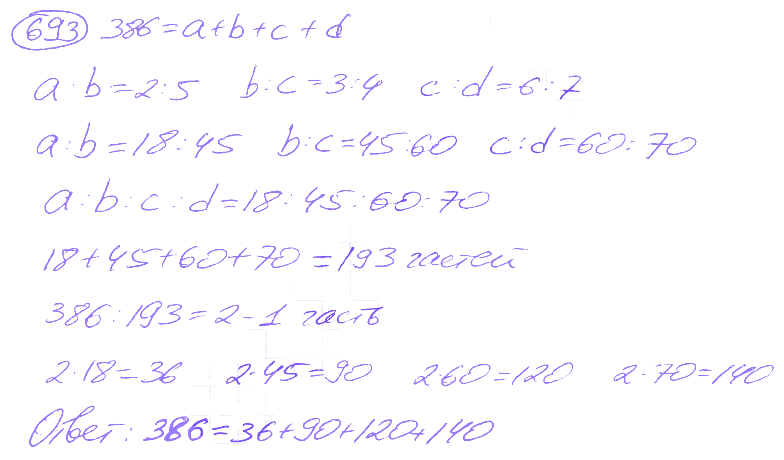 693 386=a+b+c+d
a:b=2:5 b:c=3:4 c:d=6:7
a:b=18:45 b:c=45:60 c:d=60:70
a:b:c:d=18:45:60:70
18+45+60+70=193 частей
386:193=2-1 часть
2·18=36 2·45=90 2·60=120 2·70=140
Ответ: 386=36+90+120+140